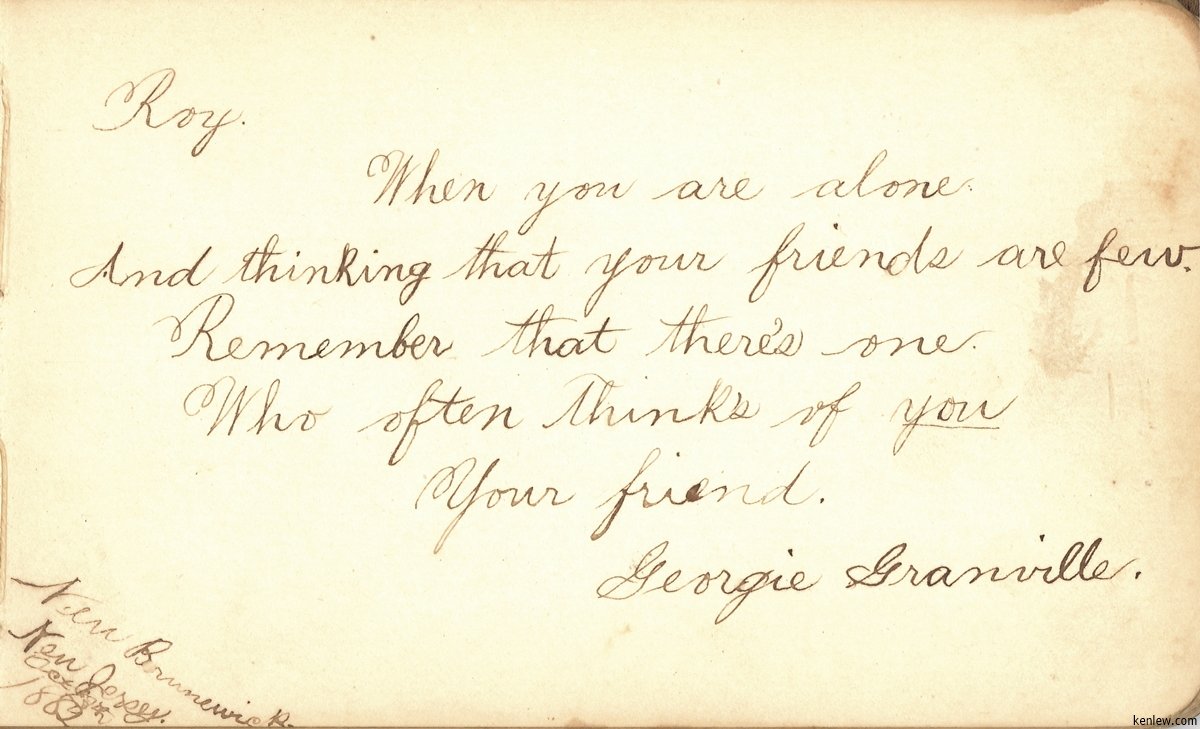 Roy.
When you are alone.
And thinking that your friends are few.
Remember that there's one.
Who often think's of you
Your friend.
Georgie Granville.
New Brunewick.
New Jersey.
Oct
188
kenlew.com